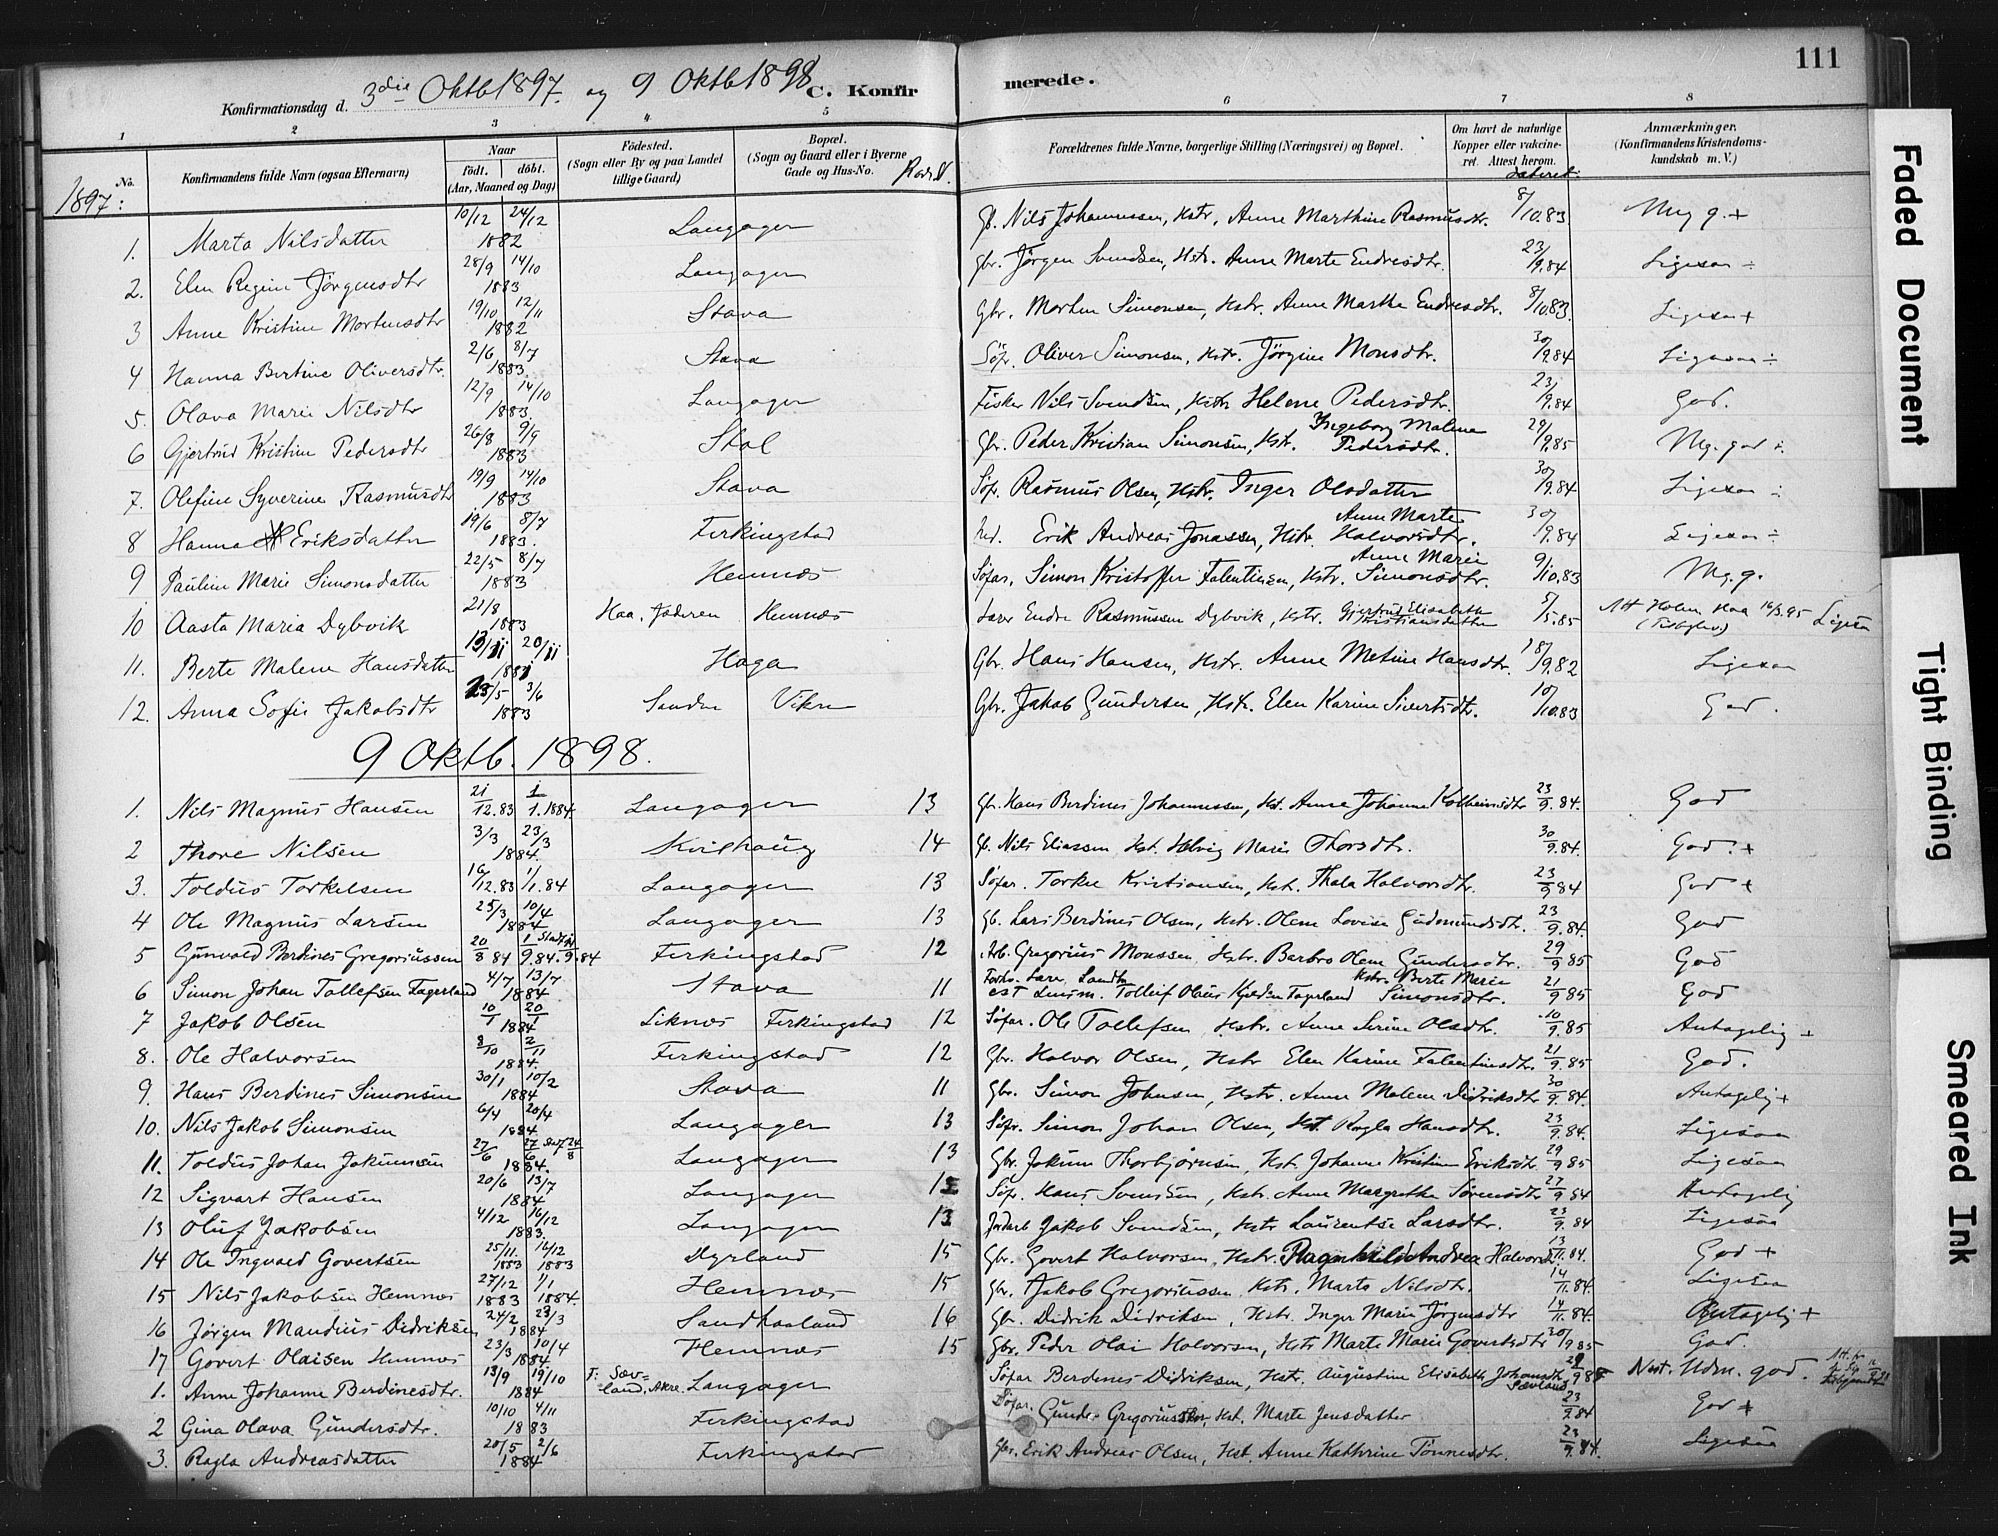 111
Konfirmationsdag d. 3die Oktb 1897. og 9 Oktb 1898 C. Konfirmerede.
1 2 3 4 5 6 7 8
No. Konfirmandens fulde Navn (ogsaa Efternavn) Naar født. døbt. (Aar, Maaned og Dag) Fødested. (Sogn eller By og paa Landet tillige Gaard) Bopæl. (Sogn og Gaard eller i Byerne Gade og Hus-No. Forældrenes fulde Navne, borgerlige Stilling (Næringsvei) og Bopæl. Om havt de naturlige Kopper eller vaccineret. Attest herom. dateret: Anmærkninger. (Konfirmandens Kristendomskundskab m. V.)
1897:
1. Marta Nilsdatter 10/12 24/12 1882 Langager Gb. Nils Johannessen, Hstr, Anne Marthine Rasmusdtr. 8/10.83 Meg g. +
2. Elen Regine Jörgensdtr 28/9 14/10 1883 Langager Gbr. Jörgen Svendsen, Hstr. Anne Marte Endresdtr. 23/9.84 Ligesaa ÷
3 Anne Kristine Mortensdtr 19/10 12/11 1882 Stava Gbr. Morten Simonsen, Hstr. Anne Marthe Endresdtr. 8/10.83. Ligesaa +
4 Hanna Bertine Oliversdtr. 2/6 8/7 1883. Stava Söfr. Oliver Simonsen, Hstr. Jörgine Monsdtr. 30/9.84 Ligesaa ÷
5. Olava Marie Nilsdtr 12/9 14/10 1883. Langager Fisker Nils Svendsen, Hstr Helene Pedersdtr. 23/9.84 God.
6 Gjertrud Kristine Pedersdtr 26/8 9/9 1883 Stol Gbr. Peder Kristian Simonsen, Hst. Ingeborg Malene Pedersdtr. 29/9.85 Mg. god ÷
7. Olefine Syverine Rasmusdtr 19/9 14/10 1883 Stava Söfr. Rasmus Olsen, Hstr. Inger Olsdatter 30/9.84 Ligesaa ÷
8 Hanna Eriksdatter 19/6 8/7 1883. Ferkingstad Erik Andreas Jonassen, Hstr. Anne Marte Halvorsdtr. 30/9.84 Ligesaa ÷
9 Pauline Marie Simonsdatter 22/5 8/7 1883 Hemnes Söfar. Simon Kristoffer Falentinsen, Hstr. Anne Marie Simonsdtr. 9/10.83 Mg. g.
10 Aasta Maria Dybvik 21/8 1883 Haa, Jæderen Hemnes Lærer Endre Rasmussen Dybvik, Hstr. Gjertrud Elisabeth Kristiansdatter 5/5.85 Att Holm Haa 16/3.95 Ligesaa
11. Berte Malene Hansdatter 13/11 20/11 1881 Haga Gbr. Hans Hansen, Hstr. Anne Metine Hansdtr. 18/9.82 Ligesaa
12. Anna Sofie Jakobsdtr 25/5 3/6 1883 Sandve Vikre Gbr. Jakob Gundersen, Hstr. Elen Karine Sivertsdtr. 10/10.83 God.
9 Oktb. 1898.
1. Nils Magnus Hansen 21/12.83 1/1.1884. Langager 13 Gbr. Hans Berdines Johannessen, Hst. Anne Johanne Kolbeinsdtr 23/9.84. God
2 Thore Nilsen 3/3 23/3 1884. Kvilhaug 14 Gb. Nils Eliassen, Hst. Helvig Marie Thorsdtr. 30/9.84. God. +
3. Toldius Torkelsen 16/12.83 1/1.84 Langager 13 Söfar. Torkel Kristiansen, Hst. Thala Halvorsdtr. 23/9 84 God +
4 Ole Magnus Larsen 25/3 10/4 1884 Langager 13 Gb. Lars Berdines Olsen, Hstr. Olene Lovise Gudmundsdtr. 23/9.84. God
5 Gunvald Berdines Gregoriussen 20/8 84 1/9.84. Stadf. 21/9.84 Ferkingstad 12 Arb. Gregorius Monssen, Hstr. Barbro Olene Gundersdtr. 29/9 85 God
6 Simon Johan Tollefsen Fagerland 4/7 13/7 1884 Stava 11 Tollef Olaus Fagerland Hstr. Berte Marie Simonsdtr. 21/9 85 God
7 Jakob Olsen 10/1 20/1 1884 Liknes Ferkingstad 12 Söfar. Ole Tollefsen, Hstr. Anne Serine Olsdtr. 10/9.85 Antagelig +
8. Ole Halvorsen 8/10 2/11 1884. Ferkingstad 12 Gbr. Halvor Olsen, Hstr Elen Karine Falentinsdtr. 21/9.85 God.
9. Hans Berdines Simonsen 30/1 10/2 1884 Stava 11 Gbr. Simon Johnsen, Hstr. Anne Malene Didriksdtr 30/9.84. Antagelig +
10. Nils Jakob Simonsen 6/4 20/4 1884 Langager 13 Söfr. Simon Johan Olsen, Hst. Ragla Hansdtr. 23/9.84. Ligesaa
11. Toldius Johan Jokumsen 27/6 27/6 Stadf 24/8 1884. Langager 13 Gbr. Jokum Thorbjörnsen, Hst. Johanne Kristine Eriksdtr. 29/9 85 Ligesaa
12 Sigvart Hansen 20/6 13/7 1884 Langager Söfr. Hans Svendsen, Hstr. Anne Margrethe Sørensdtr 27/9 84 Antagelig
13 Oluf Jakobsen 4/12 16/12 1883. Langager 13 Jordarb Jakob Svendsen, Hstr Laurentse Larsdtr. 23/9.84 Ligesaa
14 Ole Ingvald Govertsen 25/11. 1883 16/12 1883 Dyrland 15 Gbr. Govert Halvorsen, Hstr. Ragnhild Andrea Halvorsd 13/11.84. God +
15 Nils Jakobsen Hemnes 27/12 1883 1/1 1884. Hemnes 15 Gbr. Jakob Gregoriussen, Hstr. Marta Nilsdtr. 14/11.84. Ligesaa
16 Jörgen Mandius Didriksen 24/2 23/3 1884 Sandhaaland 16 Gbr. Didrik Didriksen, Hstr. Inger Marie Jörgensdtr 14/11.84. Antagelig +
17 Govert Olaisen Hemnes 23/3 10/4 1884 Hemnes 15 Gbr. Peder Olai Halvorsen, Hstr Marte Marie Govertsdtr 30/9 85 God.
1. Anne Johanne Berdinesdtr. 13/9 19/10 1884 F: Sævland, Akre. Langager Söfar Berdenes Didriksen, Hst. Augustine Elisabeth Johansdtr. Sævland God.
2 Gina Olava Gundersdtr. 10/10 4/11 1883 Ferkingstad Söfar. Gunder Gregoriussen, Hst. Marte Jensdatter 23/9.84 God +
3. Ragla Andreasdatter 20/5 2/6 1884 Ferkingstad Gbr. Erik Andreas Olsen, Hst. Anne Kathrine Tönnesdtr. 23/9.84. Ligesaa
Faded Document
Tight Binding
Smeared Ink